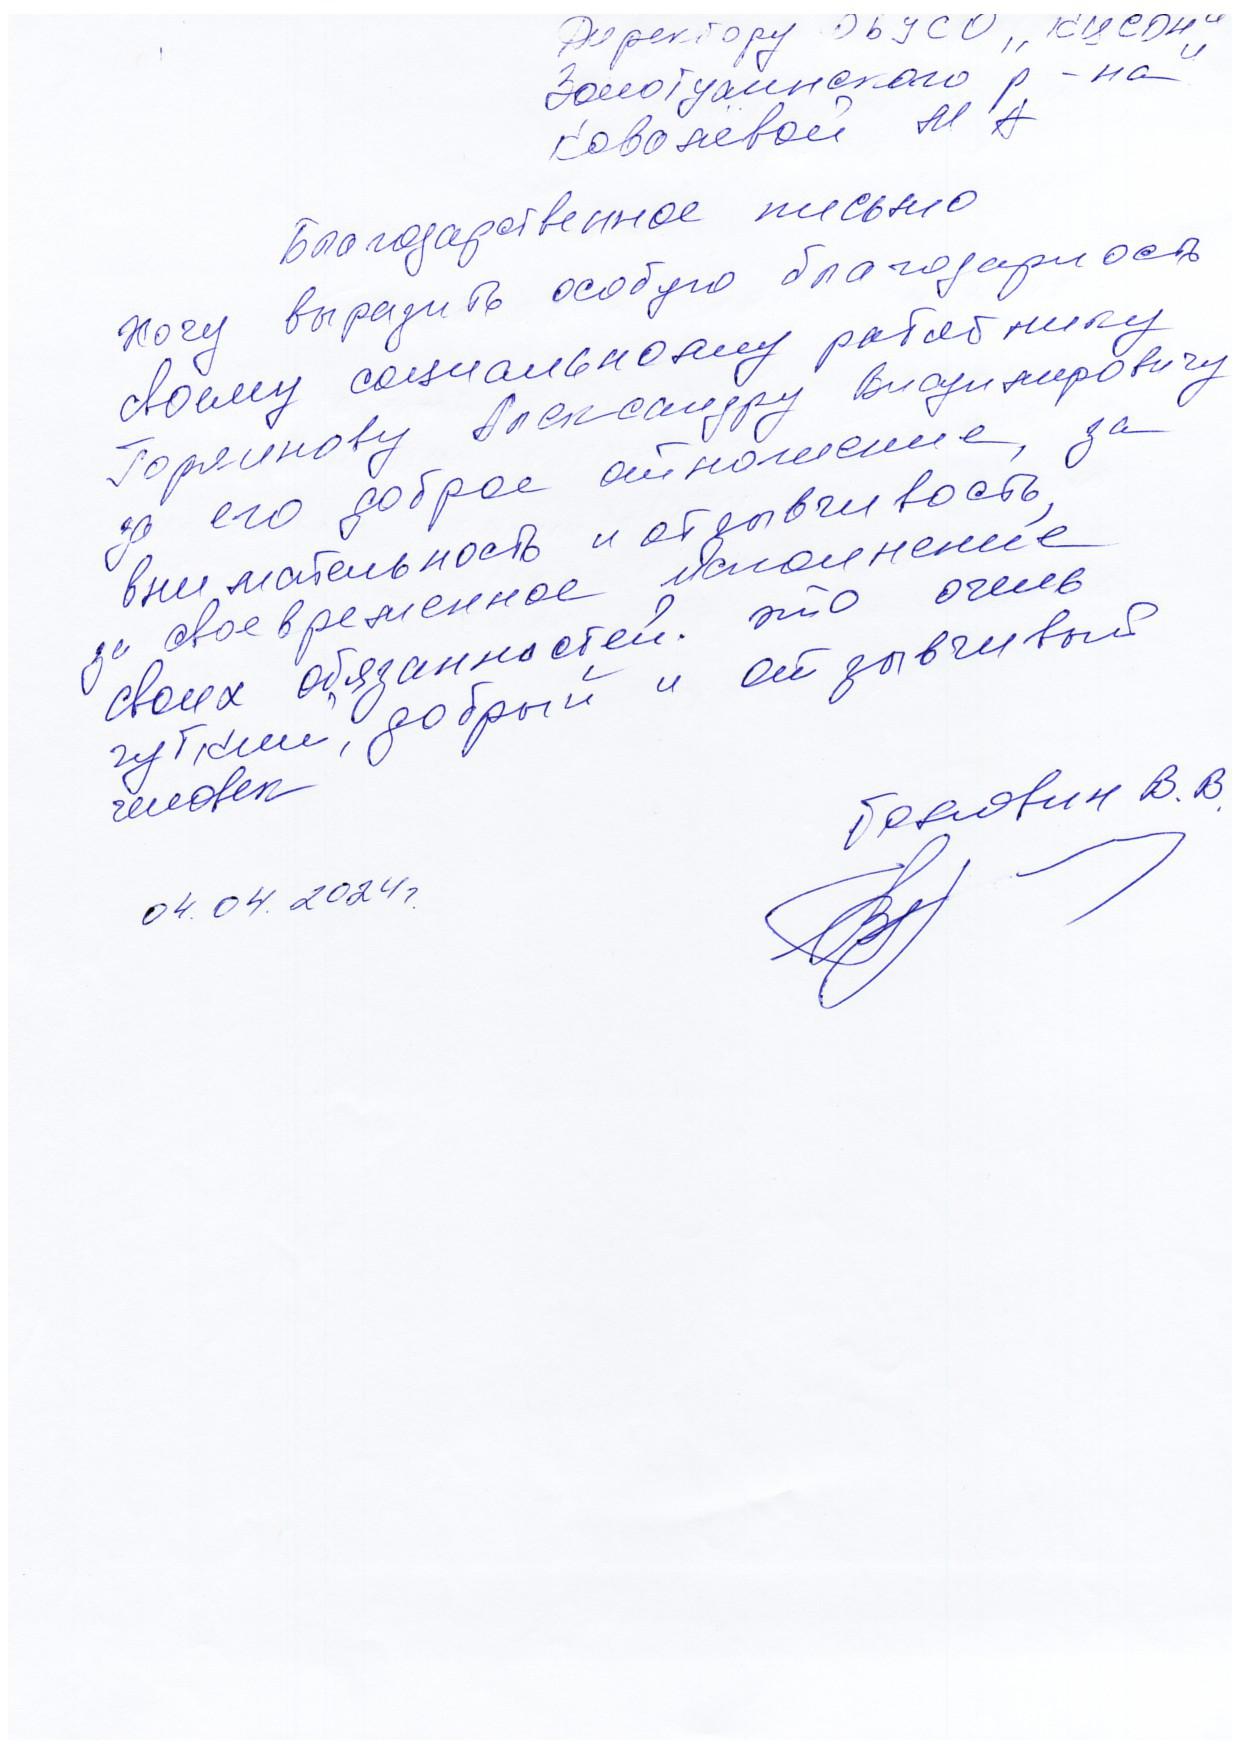 Директору ОБУСО „КЦСОН"
Золотухинского р-на"
Ковалевой М А
Благодарственное письмо
Хочу выразить особую благодарность
своему социальному работнику
Горяинову Александру Владимировичу
за его доброе отношение, за
внимательность и отзывчивость,
за своевременное исполнение
своих обязанностей. Это очень
чуткий, добрый и отзывчивый
человек
В. В.
04.04.2024г.